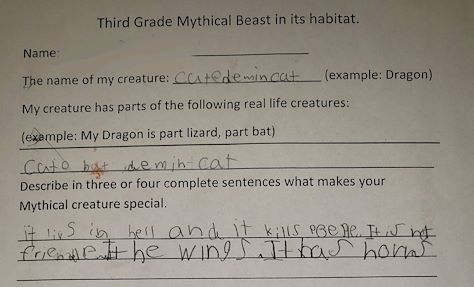 Third Grade Mythical Beast in its habitat.
Name:
The name of my creature: cutedemincat (example: Dragon)
My creature has parts of the following real life creatures:
(example: My Dragon is part lizard, part bat)
demin-cat
Describe in three or four complete sentences what makes your
Mythical creature special.
it livs in hell and it kills It is not
he wings. It has horns